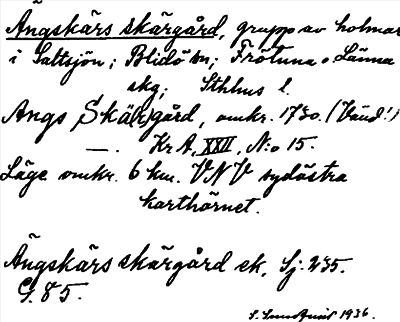 Ängskärs skärgård, grupp av holmar
i Saltsjön; Blidö sn; Frötuna o. Länna
skg; Sthlms l.
Ängs Skär(r)gård, omkr. 1730. (Vänd!)
—. Kr A, XXII, N:o 15.
Läge omkr. 6 km. VNV sydöstra
karthörnet.
Ängskärs skärgård ek, Sj. 235.
G. 85.
S. Sundquist 1936.